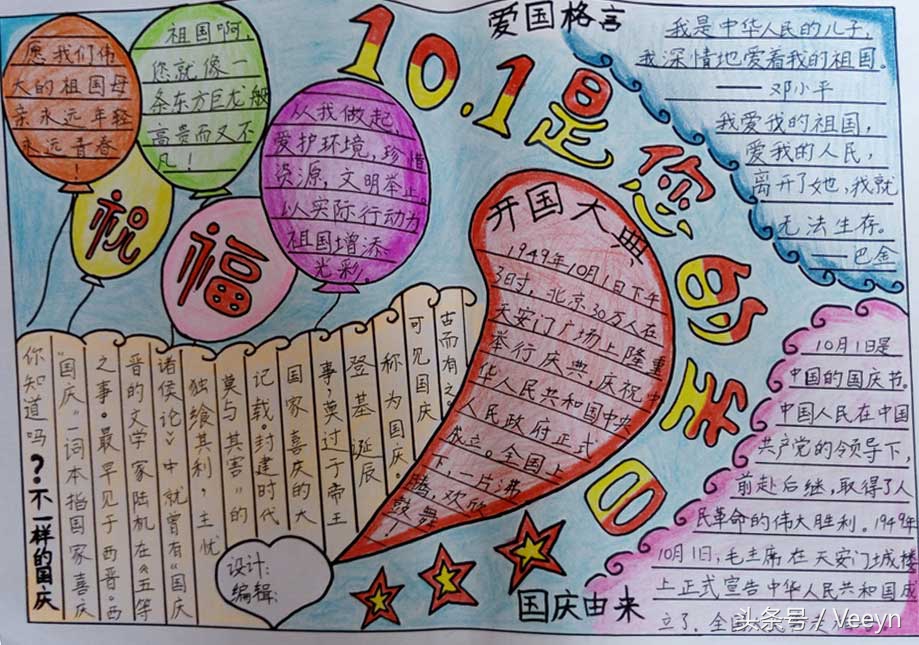 愿我们伟
大的祖国母
亲永远年轻
永远青春
！
祖国啊，
您就像一
条东方巨龙般
高贵而又不
凡！
从我做起，
爱护环境，珍惜
资源，文明举止。
以实际行动为
祖国增添
光彩。
祝
福
10.1是您的生日
爱国格言
我是中华人民的儿子，
我深情地爱着我的祖国。
——邓小平
我爱我的祖国，
爱我的人民，
离开了她，我就
无法生存。
——巴金
开国大典
1949年10月1日下午
3时，北京30万人在
天安门广场上隆重
举行庆典，庆祝中
华人民共和国中央
人民政府正式
成立。全国上
下，一片沸
腾，欢欣
鼓舞
！
你知道吗？不一样的国庆
“国庆”一词本指国家喜庆
之事。最早见于西晋。西
晋的文学家陆机在《五等
诸侯论》中就曾有“国庆
独飨其利，主忧
莫与其害”的
记载。封建时代
国家喜庆的大
事，莫过于帝王
登基诞辰
称为国庆。
可见国庆
古而有之。
设计：
编辑：
国庆由来
10月1日是
中国的国庆节。
中国人民在中国
共产党的领导下，
前赴后继，取得了人
民革命的伟大胜利。1949年
10月1日，毛主席在天安门城楼
上正式宣告中华人民共和国成
立了。全国
头条号 / Veeyn